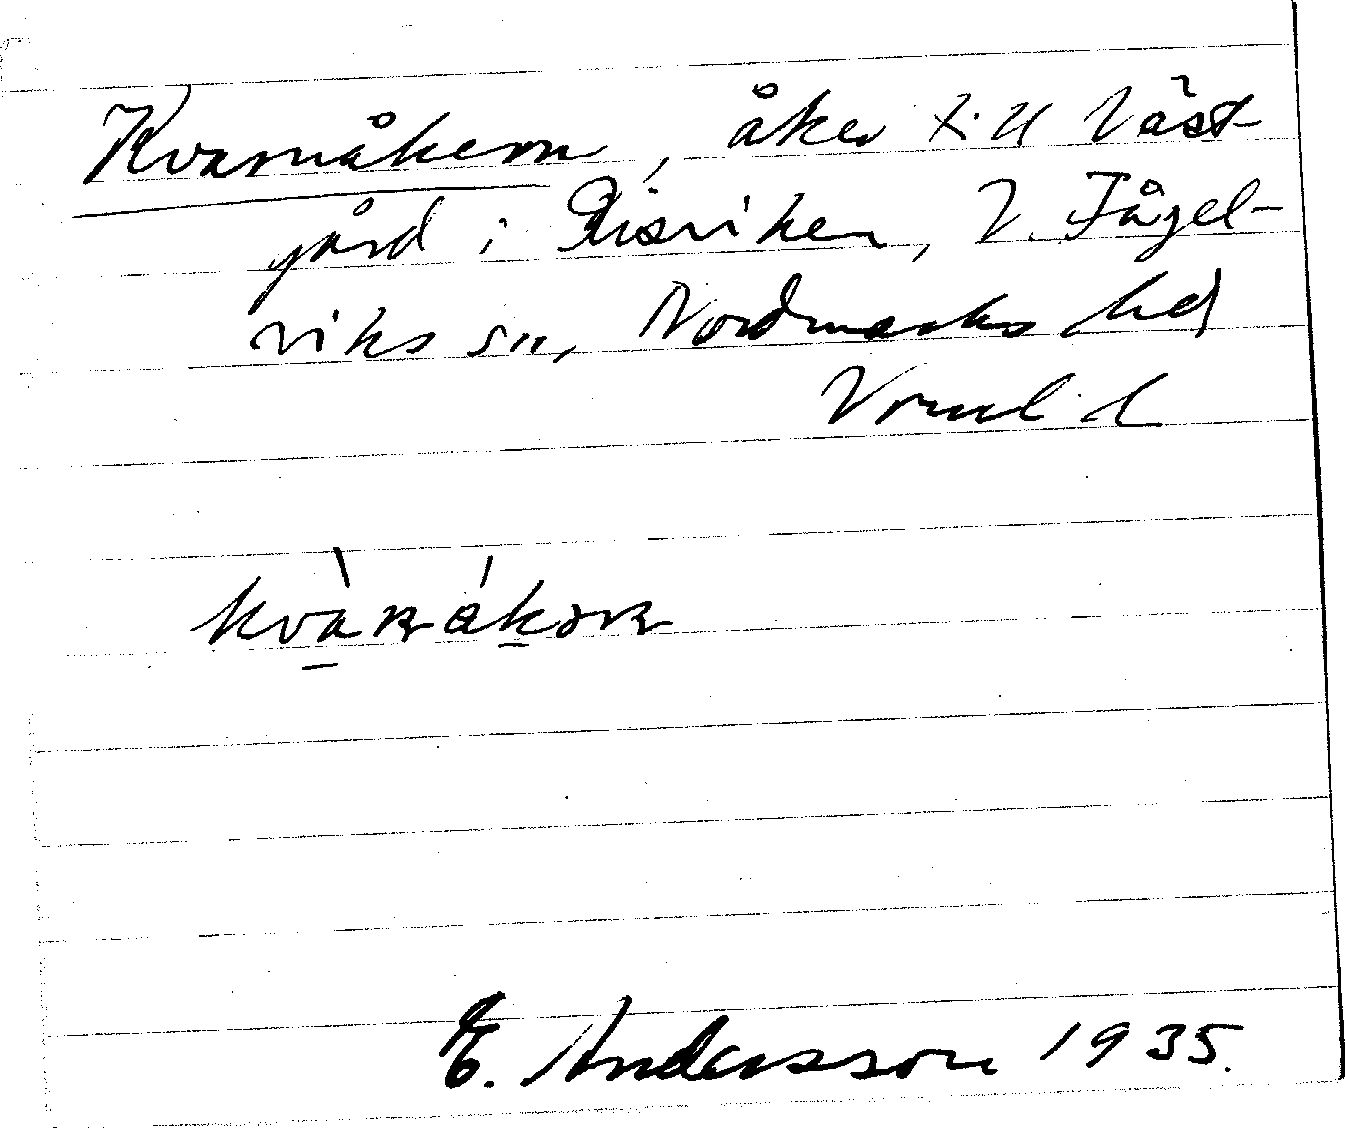 Kvarnåkern, åker till Väst-
gård i Risviken, V. Fågel-
viks sn, Nordmarks hd
Vrml. l
kvàɳákəɳ
E. Andersson 1935.